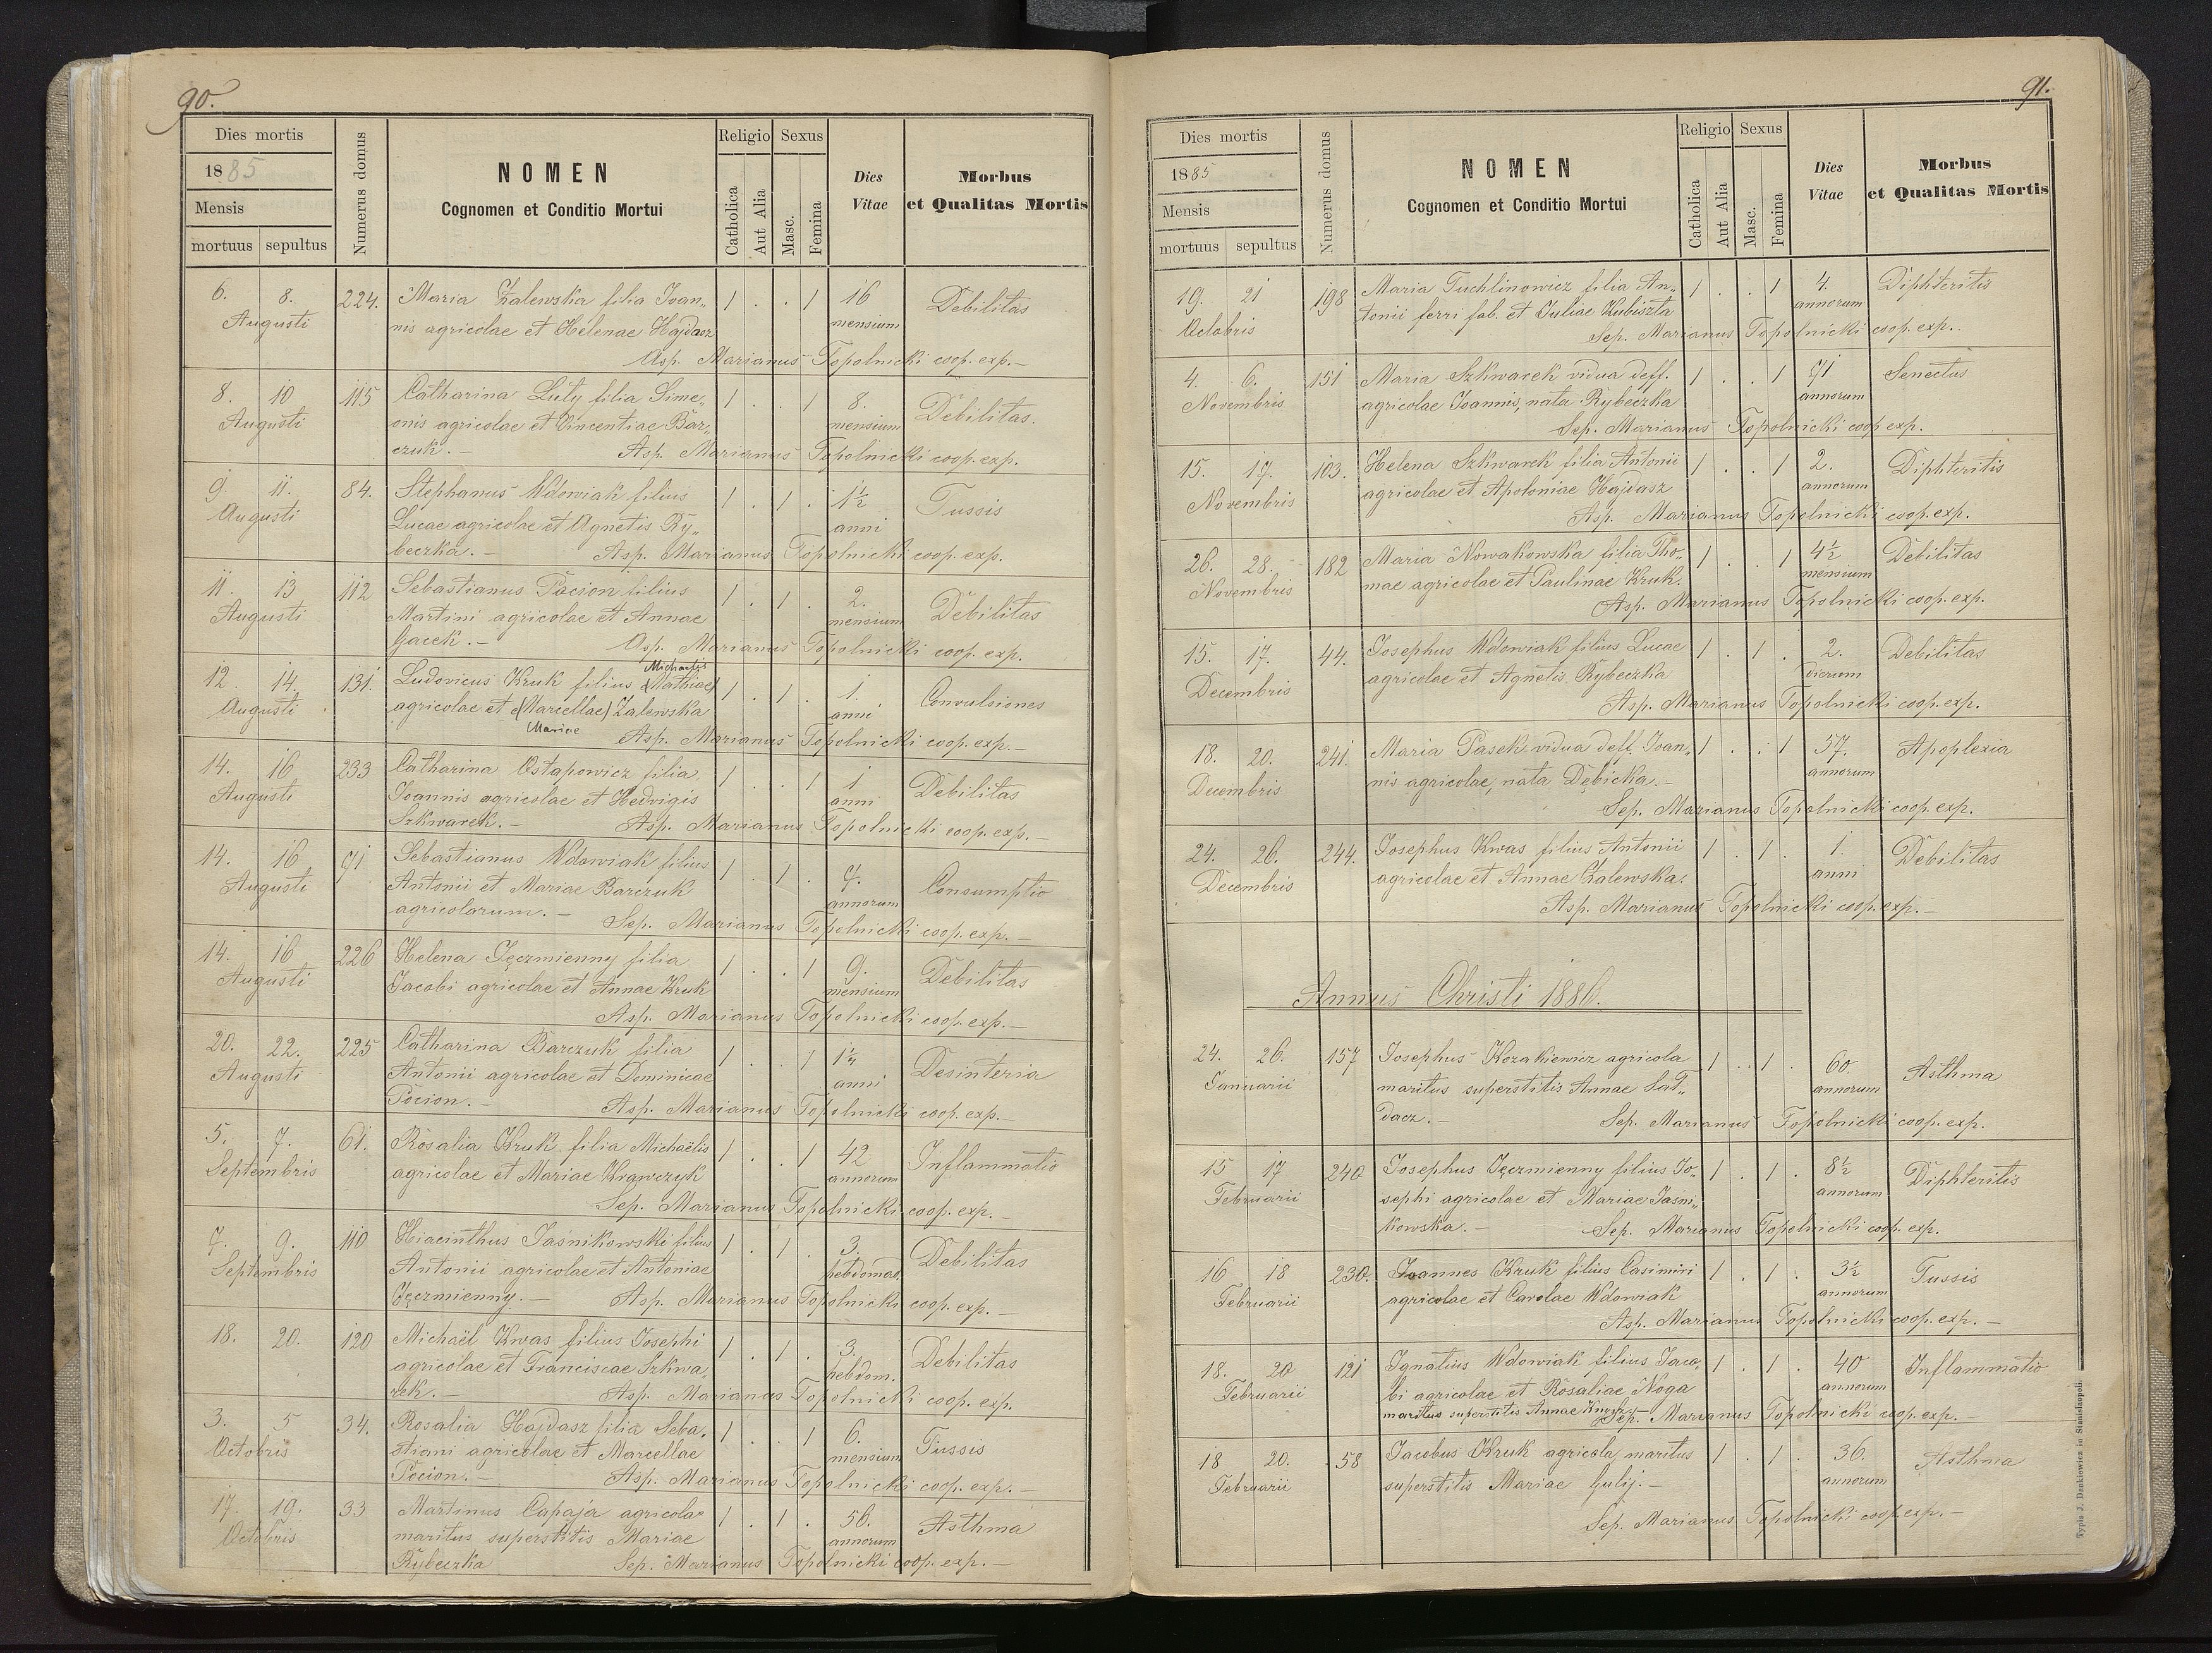 90.
Dies mortis
1885
Mensis
mortuus sepultus
Numerus domus
NOMEN
Cognomen et Conditio Mortui
Religio
Catholica
Aut Alia
Sexus
Masc.
Femina
Dies
Vitae
Morbus
et Qualitas Mortis
6. 8. 224. Maria Zalewska filia Ioan„ 1 . . 1 16 Debilitas
Augusti nis agricolae et Helenae Hajdasz mensium
Asp. Marianus Topolnicki coop. exp.—
8. 10 115 Catharina Luty filia Sime„ 1 . . 1 8. Debilitas.
Augusti onis agricolae et Vincentiae Bar„ mensium
czuk.— Asp. Marianus Topolnicki coop. exp.
9. 11. 84. Stephanus Wdowiak filius 1 . 1 . 1½ Tussis
Augusti Lucae agricolae et Agnetis Ry„ anni
beczka.— Asp. Marianus Topolnicki coop. exp.
11. 13 112 Sebastianus Pacion filius 1 . 1 . 2. Debilitas
Augusti Martini agricolae et Annae mensium
Gacek.— Asp. Marianus Topolnicki coop. exp.
Michaelis
12. 14. 131. Ludovicus Kruk filius (Mathiae) 1 . 1 . 1. Convulsiones
Augusti agricolae et (Marcellae) Zalewska anni
Mariae Asp. Marianus Topolnicki coop. exp.—
14. 16 233 Catharina Ostapowicz filia 1 . . 1 1 Debilitas
Augusti Joannis agricolae et Hedvigis anni
Szkwarek.— Asp. Marianus Topolnicki coop. exp.—
14. 16 91 Sebastianus Wdowiak filius 1 . 1 . 7. Consumptio
Augusti Antonii et Mariae Barczuk annorum
agricolarum.— Sep. Marianus Topolnicki coop. exp.—
14. 16 226 Helena Jęczmienny filia 1 . . 1 9. Debilitas
Augusti Jacobi agricolae et Annae Kruk mensium
Asp. Marianus Topolnicki coop. exp.—
20. 22. 225 Catharina Barczuk filia 1 . . 1 Desinteria
Augusti Antonii agricolae et Dominicae anni
Pocion.— Asp. Marianus Topolnicki coop. exp.—
5. 7. 61. Rosalia Kruk filia Michaëlis 1 . . 1 42 Inflammatio
Septembris agricolae et Mariae annorum
Sep. Marianus Topolnicki coop. exp.—
7. 9. 110 Hiacinthus Jasnikowski filius 1 . 1 . 3. Debilitas
Septembris Antonii agricolae et Antoniae hebdomad.
Jęczmienny.— Asp. Marianus Topolnicki coop. exp.—
18. 20. 120 Michaël Kwas filius Josephi 1 . 1 . 3. Debilitas
agricolae et Franciscae Szkwa„ hebdom.
rek.— Asp. Marianus Topolnicki coop. exp.
3. 5 34. Rosalia Hajdasz filia Seba„ 1 . . 1 6. Tussis
Octobris stiani agricolae et Marcellae mensium
Pocion.— Asp. Marianus Topolnicki coop. exp.—
17. 19. 33 Martinus Capaja agricola 1 . 1 . 56. Asthma
Octobris maritus superstitis Mariae annorum
Rybeczka Sep. Marianus Topolnicki coop. exp.—
91.
Dies mortis
1885
Mensis
mortuus sepultus
Numerus domus
NOMEN
Cognomen et Conditio Mortui
Religio
Catholica
Aut Alia
Sexus
Masc.
Femina
Dies
Vitae
Morbus
et Qualitas Mortis
19. 21 198 Maria Tuchlinowicz filia An„ 1 . . 1 4. Diphteritis
Octobris tonii ferri fab. et Juliae Kubiszta annorum
Sep. Marianus Topolnicki coop. exp.
4. 6. 151 Maria Szkwarek vidua deff. 1 . . 1 71 Senectus
Novembris agricolae Joannis, nata Rybeczka annorum
Sep. Marianus Topolnicki coop exp.
15. 17. 103. Helena Szkwarek filia Antonii 1 . . 1 2. Diphteritis
Novembris agricolae et Apoloniae Hajdasz annorum
Asp. Marianus Topolnicki coop. exp.
26. 28. 182 Maria Nowakowska filia Tho„ 1 . . 1 4½ Debilitas
Novembris mae agricolae et Paulinae Kruk. mensium
Asp. Marianus Topolnicki coop. exp.
15. 17. 44. Josephus Wdowiak filius Lucae 1 . 1 . 2. Debilitas
Decembris agricolae et Agnetis Rybeczka dierum
Asp. Marianus Topolnicki coop. exp.
18. 20. 241. Maria Pasek vidua deff. Joan„ 1 . . 1 57. Apoplexia
Decembris nis agricolae, nata Dębicka.— annorum
Sep. Marianus Topolnicki coop. exp.
24. 26. 244. Josephus Kwas filius Antonii 1 . 1 . 1. Debilitas
Decembris agricolae et Annae Zalewska. anni
Asp. Marianus Topolnicki coop. exp.—
Annus Christi 1886.
24. 26. 157 Josephus Kozakiewicz agricola 1 . 1 . 60. Asthma
Januarii maritus superstitis Annae Saj„ annorum
dacz.— Sep. Marianus Topolnicki coop. exp.
15 17 240 Josephus Jęczmienny filius Jo„ 1 . 1 . 8½ Diphteritis
Februarii sephi agricolae et Mariae Jasni„ annorum
kowska.— Sep. Marianus Topolnicki coop. exp.
16 18 230. Joannes Kruk filius Casimiri 1 . 1 . 3½ Tussis
Februarii agricolae et Carolae Wdowiak annorum
Asp. Marianus Topolnicki coop. exp.—
18. 20 121 Ignatius Wdowiak filius Jaco„ 1 . 1 . 40 Inflammatio
Februarii bi agricolae et Rosaliae Noga annorum
maritus superstitis Annae Sep. Marianus Topolnicki coop. exp.—
18 20. 58 Jacobus Kruk agricola, maritus 1 . 1 . 36. Asthma
Februarii superstitis Mariae Gulij.— annorum
Sep. Marianus Topolnicki coop. exp.—
Typis J. Dankiewicz in Stanislaopoli.